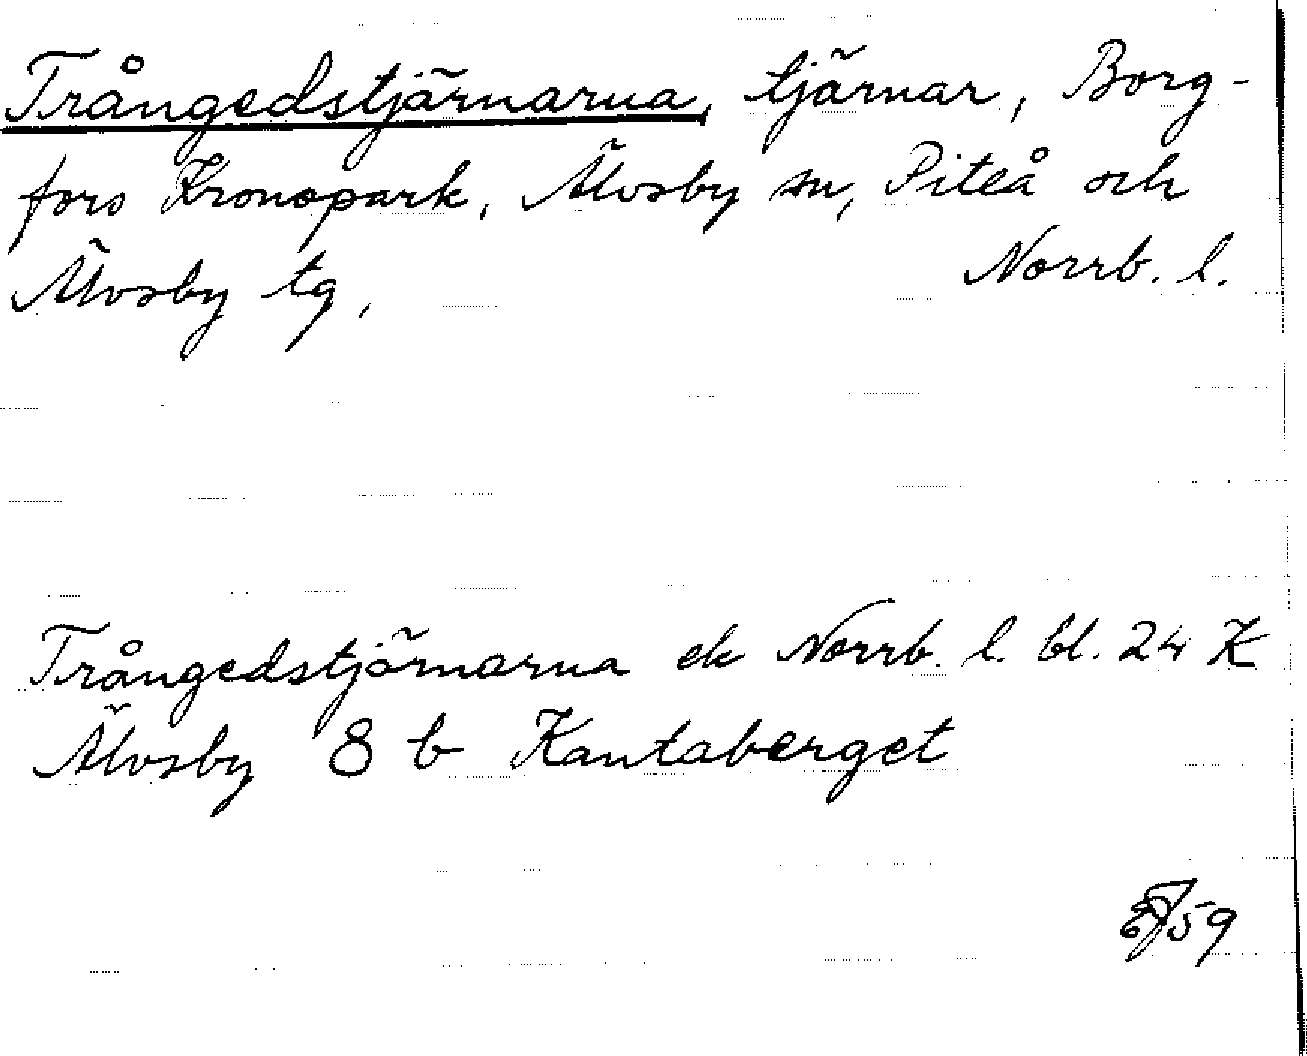 Trångedstjärnarna, tjärnar, Borg-
fors Kronopark, Älvsby sn, Piteå och
Älvsby tg, Norrb. l.
Trångedstjärnarna ek Norrb. l. bl. 24 K
Älvsby 8 b Kantaberget
59